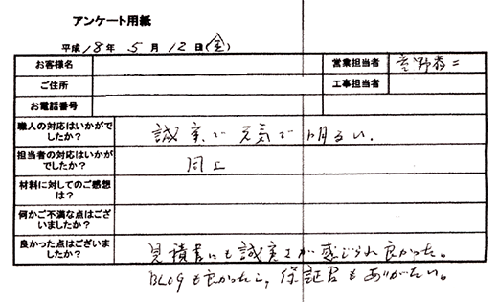 アンケート用紙
平成 18年 5月 12日(金)
お客様名
営業担当者
ご住所
工事担当者
お電話番号
職人の対応はいかがで
したか?
誠実で元気で明るい.
担当者の対応はいかが
でしたか?
同上
材料に対してのご感想
は?
何かご不満な点はござ
いましたか?
良かった点はございま
したか?
見積書にも誠実さが感じられ良かった。
BLOGも良かったし,保証書もありがたい。